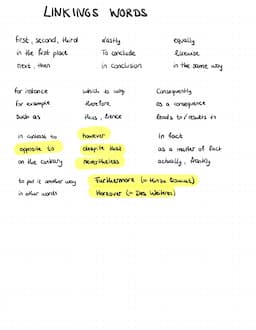 LINKINGS WORDS
first, second, third lastly equally
in the first place To conclude likewise
next, then in conclusion in the same way
for instance which is why Consequently
for example therefore as a consequence
such as thus, hence leads to / results in
in contrast to however in fact
opposite to despite that as a matter of fact
on the contrary nevertheless actually, frankly
to put it another way Furthermore (= Hinzu kommt)
in other words Moreover (= Des Weiteren)